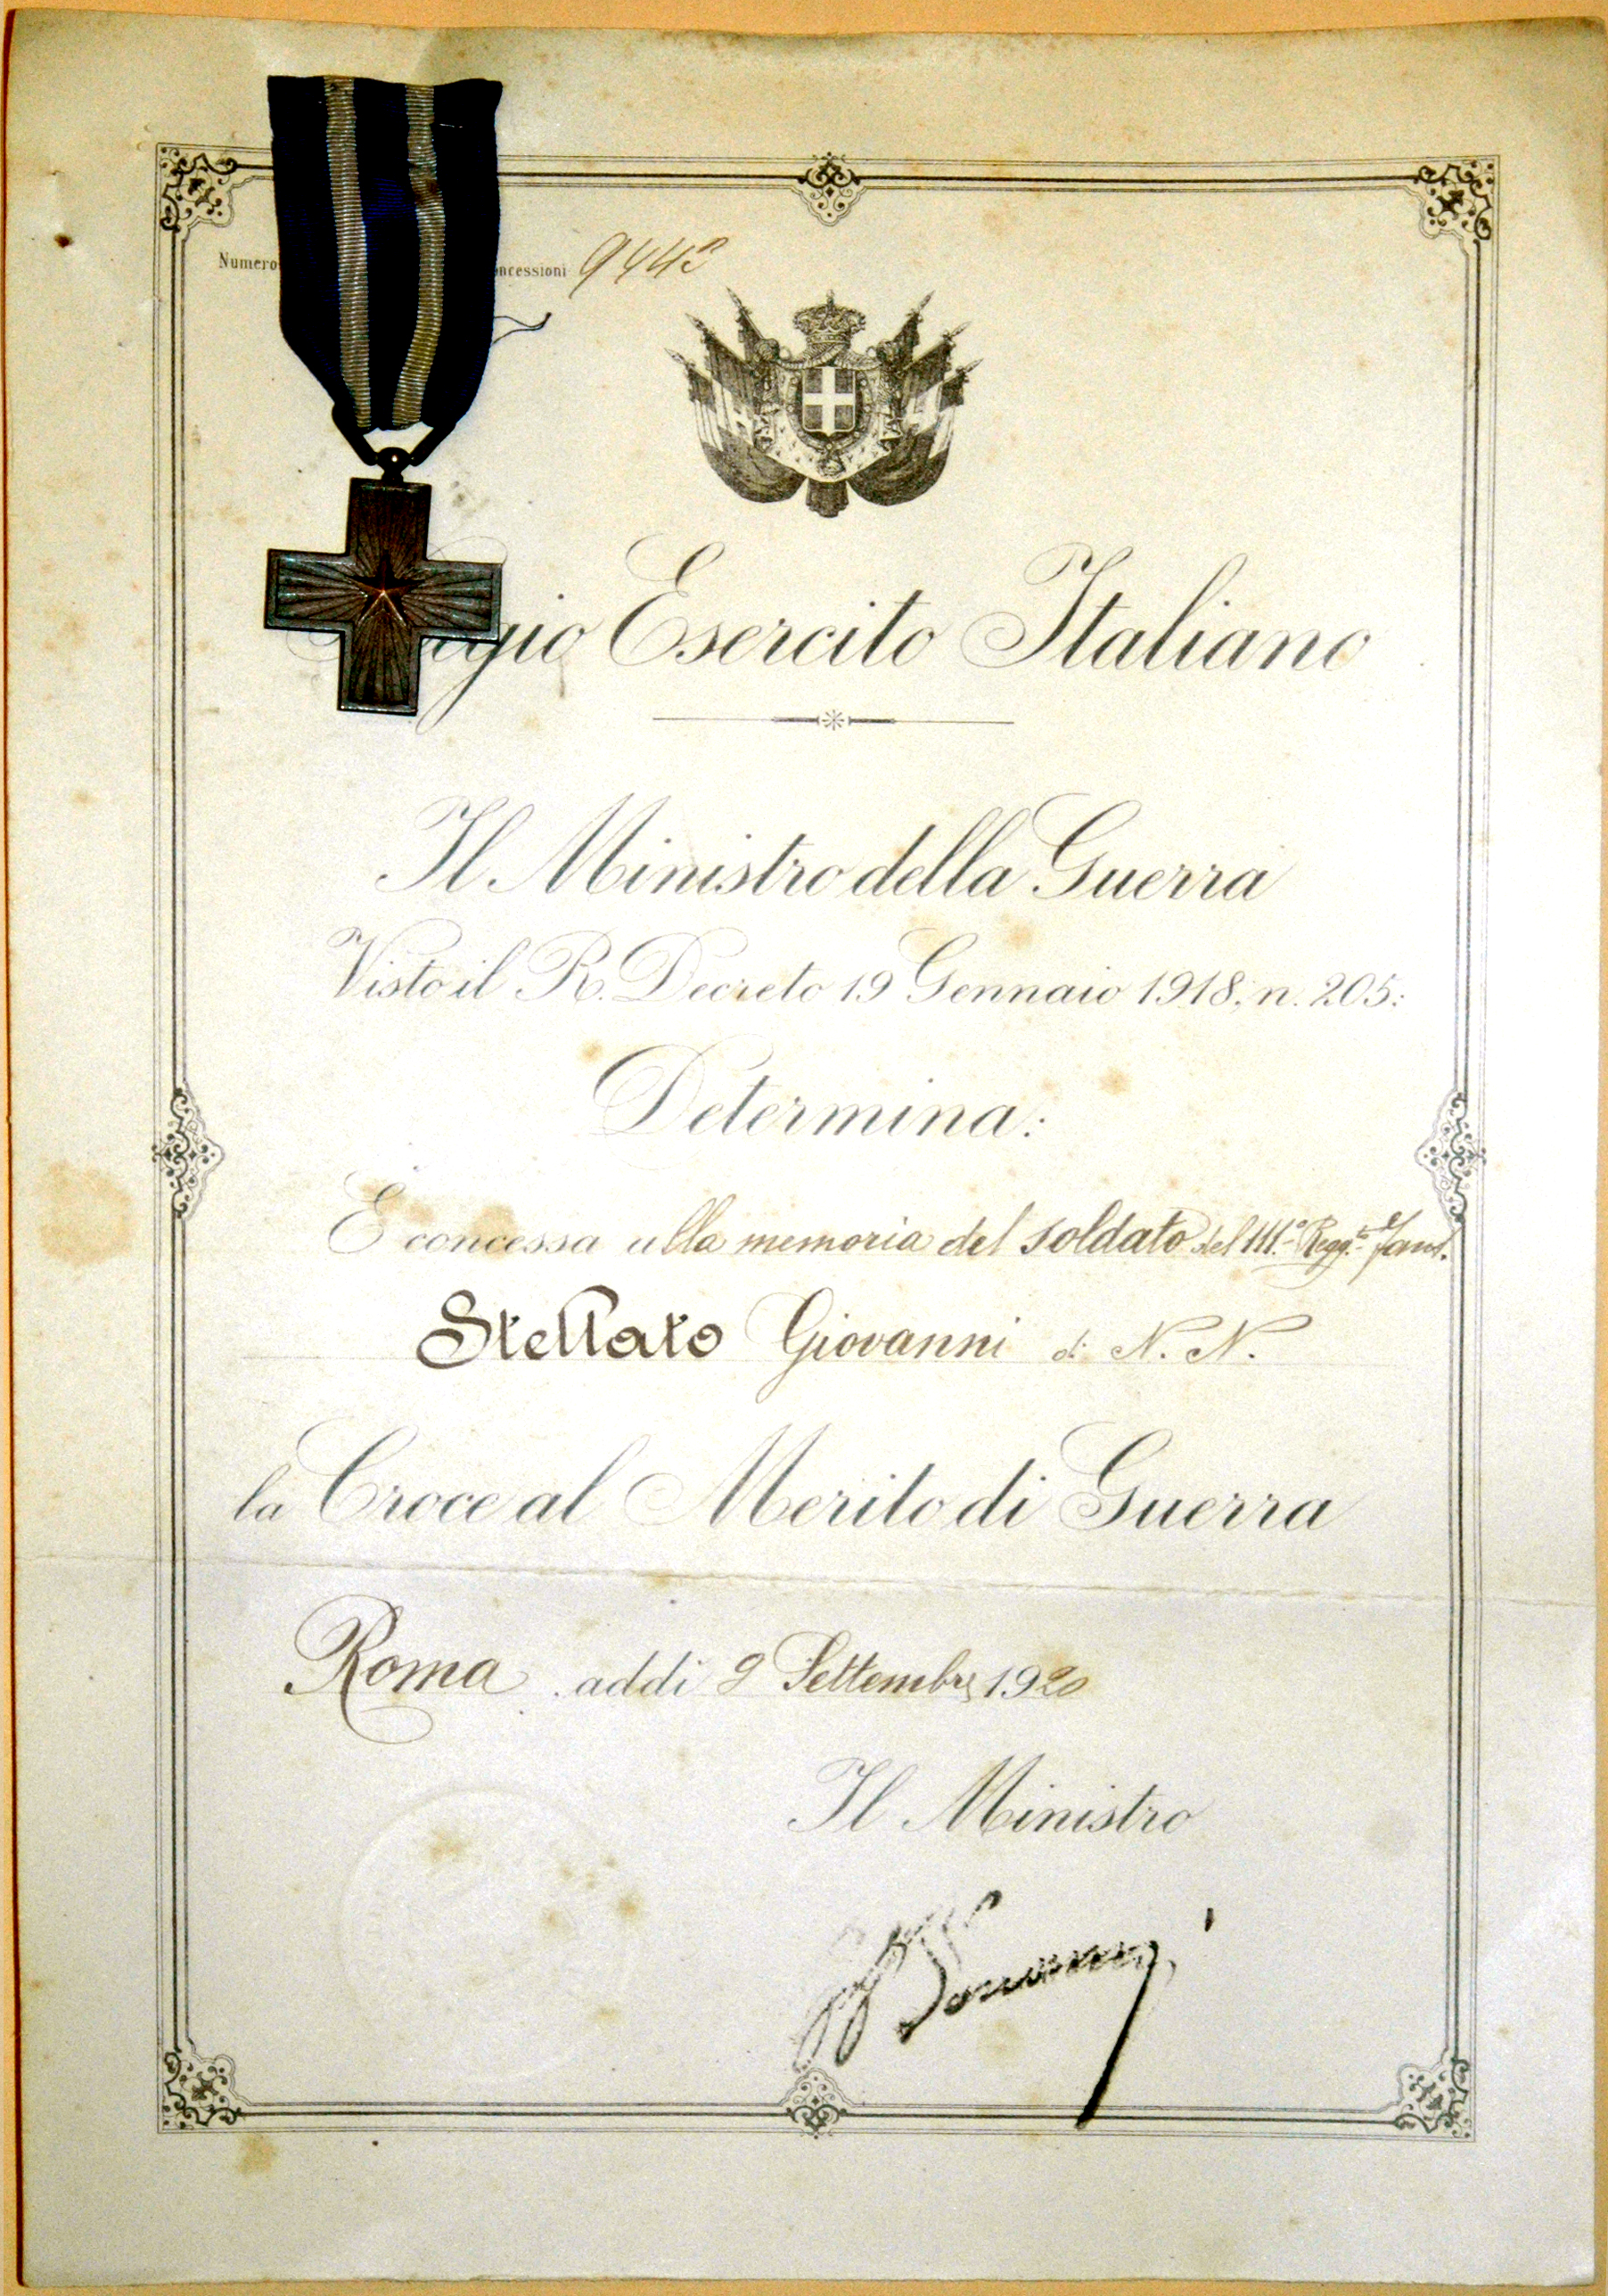 Numero ncessioni 9443
gio Esercito Italiano
Il Ministro della Guerra
Visto il R. Decreto 19 Gennaio 1918, n. 205:
Determina:
È concessa alla memoria del soldato del 111.º Regg.to Fant.
Stellato Giovanni di N. N.
la Croce al Merito di Guerra
Roma addi 2 Settembre 1920
Il Ministro